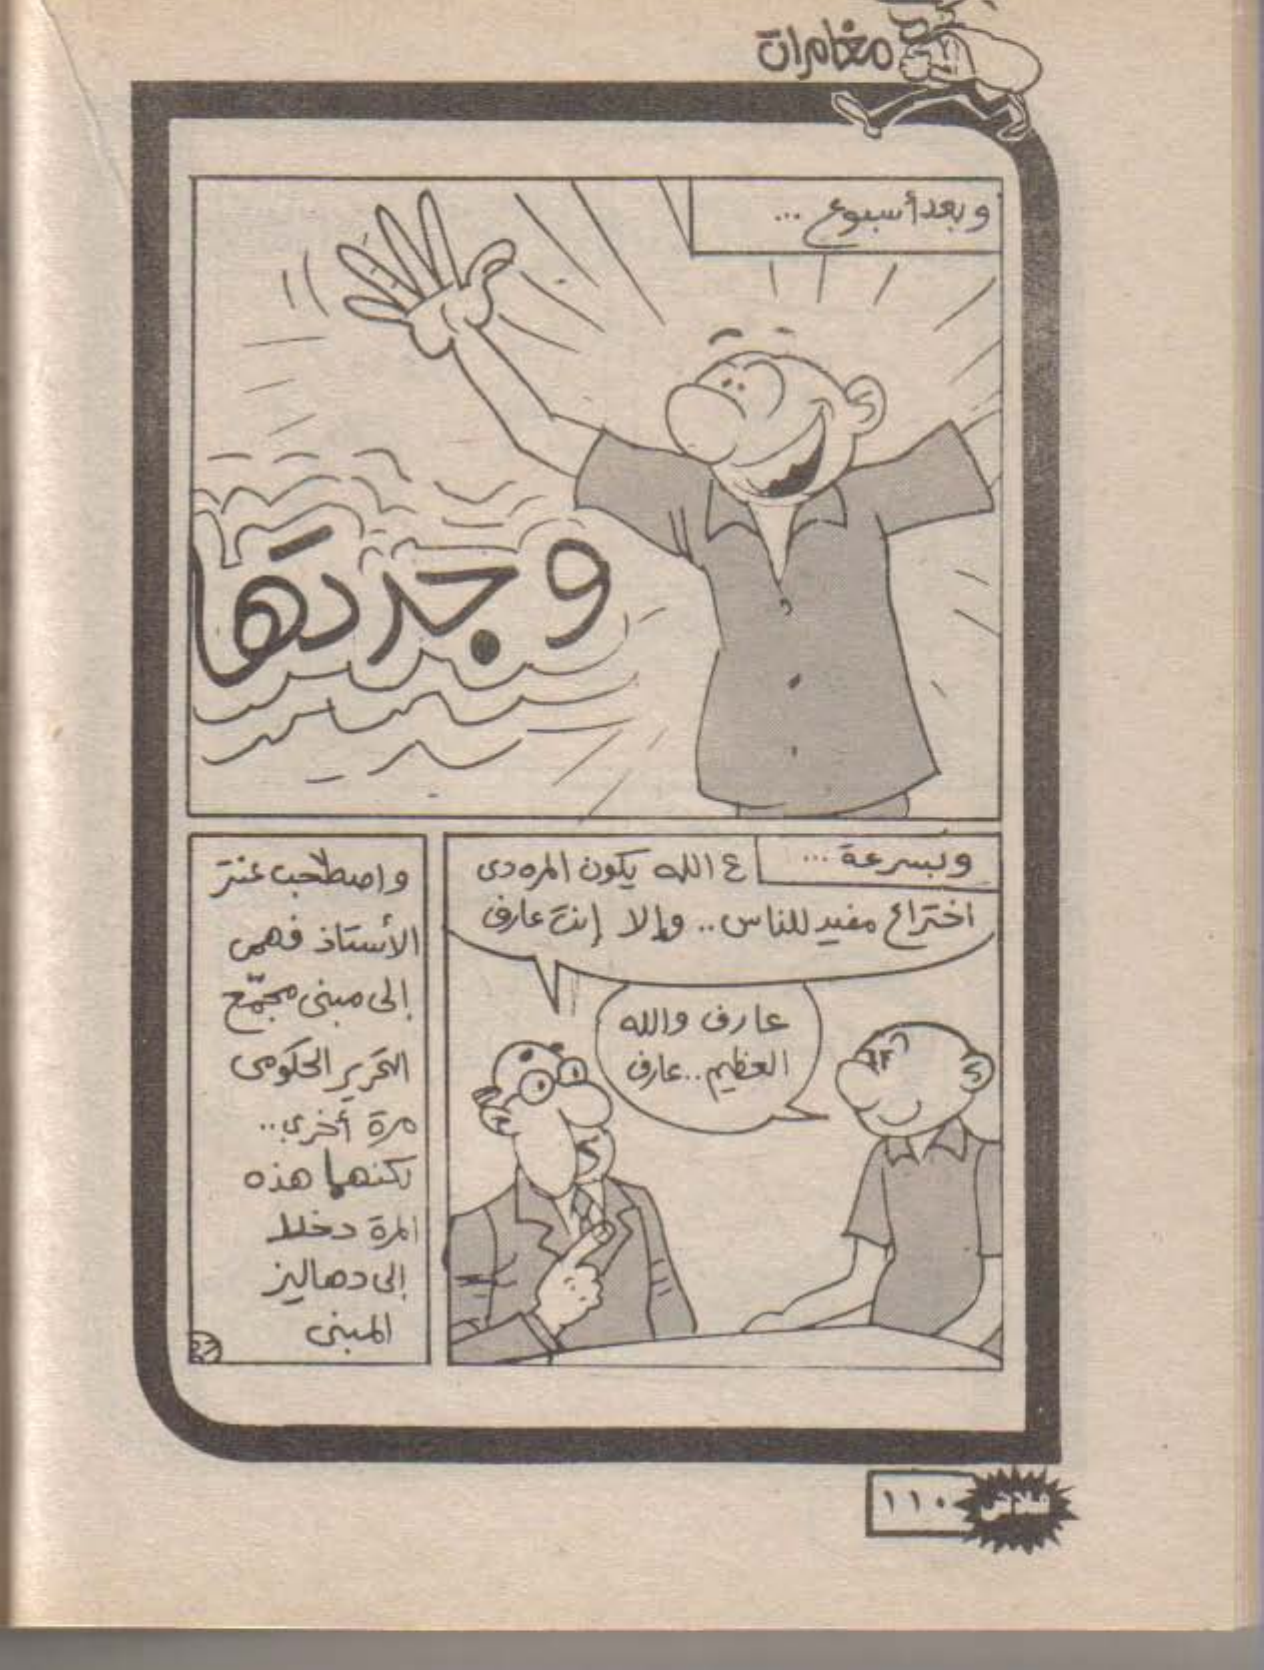 مغامرات
وبعد أسبوع ...
وجدتها
وبسرعة ...
ع الله يكون المره دى
اختراع مفيد للناس.. وإلا إنت عارف
عارف والله
العظيم.. عارف
واصطحب عنتر
الأستاذ فهمى
إلى مبنى مجمّع
التحرير الحكومى
مرة أخرى..
لكنهما هذه
المرة دخلا
إلى دهاليز
المبنى
فلاش
١١٠